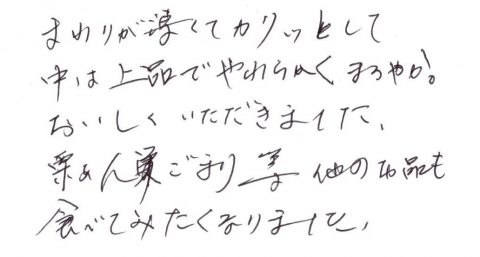 まわりが薄くてカリッとして
中は上品でやわらかくまろやか!
おいしくいただきました、
栗あん ごまり 等 他の 品も
食べてみたくなりました、